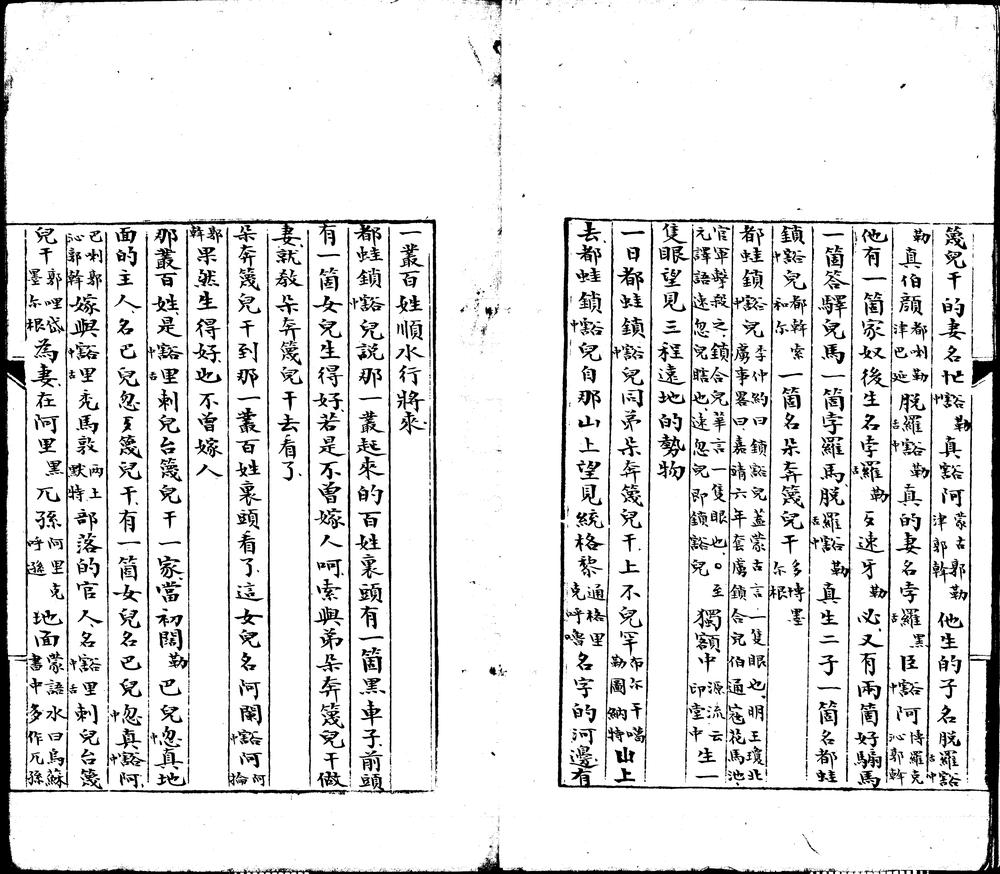 篾兒干的妻名忙豁勒真豁阿蒙古郭勒津郭斡他生的子名脱羅豁
勒真伯顔都喇勒津巴延脱羅豁勒真的妻名孛羅黑臣豁阿博羅克沁郭斡
他有一箇家奴後生名孛羅勒歹速牙勒必又有兩箇好騸馬
一箇答驛兒馬一箇孛羅馬脱羅豁勒真生二子一箇名都蛙
鎖豁兒都斡索和尔一箇名朵奔篾兒干多博墨尔根
都蛙鎖豁兒李仲約曰鎖豁兒蓋蒙古言一隻眼也明王瓊北虜事畧曰嘉靖六年套虜鎖合兒伯通寇花馬池
官軍擊殺之鎖合兒華言一隻眼也。至元譯語速忽兒瞎也速忽兒即鎖豁兒獨額中源流云印堂中生一
隻眼望見三程遠地的勢物
一日都蛙鎖豁兒同弟朵奔篾兒干上不兒罕布尔干噶勒圖納特山上
去都蛙鎖豁兒自那山上望見統格黎通格里克呼嚕名字的河邊有
一叢百姓順水行將來
都蛙鎖豁兒説那一叢起來的百姓裏頭有一箇黑車子前頭
有一箇女兒生得好若是不曾嫁人呵索與弟朵奔篾兒干做
妻就教朵奔篾兒干去看了
朵奔篾兒干到那一叢百姓裏頭看了這女兒名阿闌豁阿阿掄
郭斡果然生得好也不曾嫁人
那叢百姓是豁里剌兒台篾兒干一家當初闊勒巴兒忽真地
面的主人名巴兒忽歹篾兒干有一箇女兒名巴兒忽真豁阿
巴喇郭沁郭斡嫁與豁里禿馬敦兩土默特部落的官人名豁里剌兒台篾
兒干郭哩岱墨尔根為妻在阿里黑兀孫阿里克呼遜地面蒙語水曰烏蘇書中多作兀孫